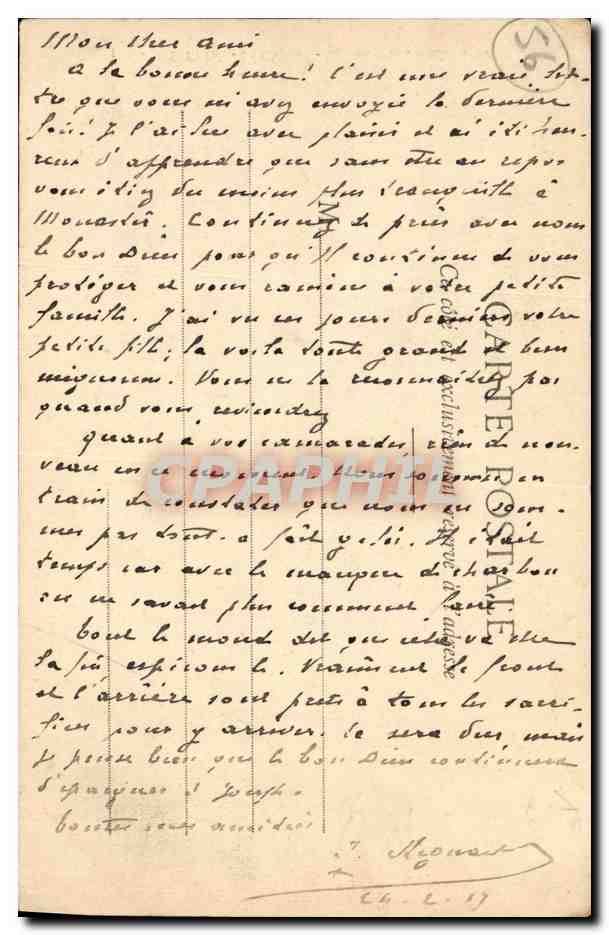 56
Mon cher ami
A la bonne heure! C'est une vraie let-
tre que vous m'avez envoyée la dernière
fois! Je l'ai lue avec plaisir et ai été heu-
reux d'apprendre que sans être au repos
vous étiez du moins plus tranquille à
Monastir. Continuez de prier avec nous
le bon Dieu pour qu'Il continue de vous
protéger et vous ramène à votre petite
famille. J'ai vu ces jours derniers votre
petite fille; la voilà toute grande et bien
mignonne. Vous ne la reconnaîtrez pas
quand vous reviendrez
Quant à vos camarades, rien de nou-
veau en ce moment. Nous sommes en
train de constater que nous ne som-
mes pas tout-à fait gelés. Il était
temps car avec le manque de charbon
on ne savait plus comment faire
Tout le monde dit que cela va être
la fin espérons-le. Vraiment le front
et l'arrière sont prêts à tous les sacri-
fices pour y arriver. Ce sera dur mais
je pense bien que le bon Dieu continuera
d'épargner
bonnes amitiés
24-2-17
CARTE POSTALE
Ce côté est exclusivement réservé à l'adresse
M
CPAPHIL